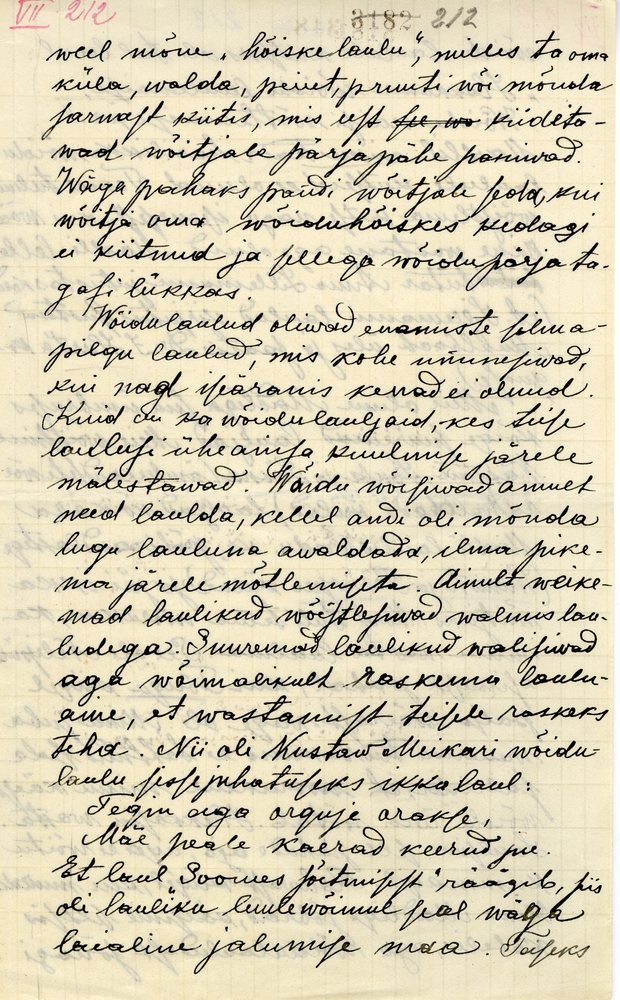 VII 212
3182 212
weel mõne „hõiskelaulu“, milles ta oma
küla, walda, peiut, pruuti wõi mõnda
sarnast kiitis, mis eest kiideta-
wad wõitjale pärja pähe paniwad.
Wäga pahaks pandi wõitjale seda, kui
wõitja oma wõiduhõiskes kedagi
ei kiitnud ja sellega wõidupärja ta-
gasi lükkas.
Wõidulaulud oliwad enamiste silma-
pilgu laulud, mis kohe ununesiwad,
kui nad iseäranis kenad ei olnud.
Kuid on ka wõidulauljaid, kes teise
laulusi üheainsa kuulmise järele
mälestawad. Wõidu wõisiwad ainult
need laulda, kellel andi oli mõnda
lugu lauluna awaldada, ilma pike-
ma järelemõtlemiseta. Ainult wäike-
mad laulikud wõistlesiwad walmis lau-
ludega. Suuremad laulikud walisiwad
aga wõimalikult raskema laulu-
aine, et wastamist teisele raskeks
teha. Nii oli Kustaw Meikari wõidu-
laulu sissejuhatuseks ikka laul:
Tegin aga orguje orakse,
Mäe peale kaerad keerud jne.
Et laul „Soomes sõitmisest“ räägib, siis
oli lauliku luulewõimul seal wäga
laialine jalumise maa. Teiseks